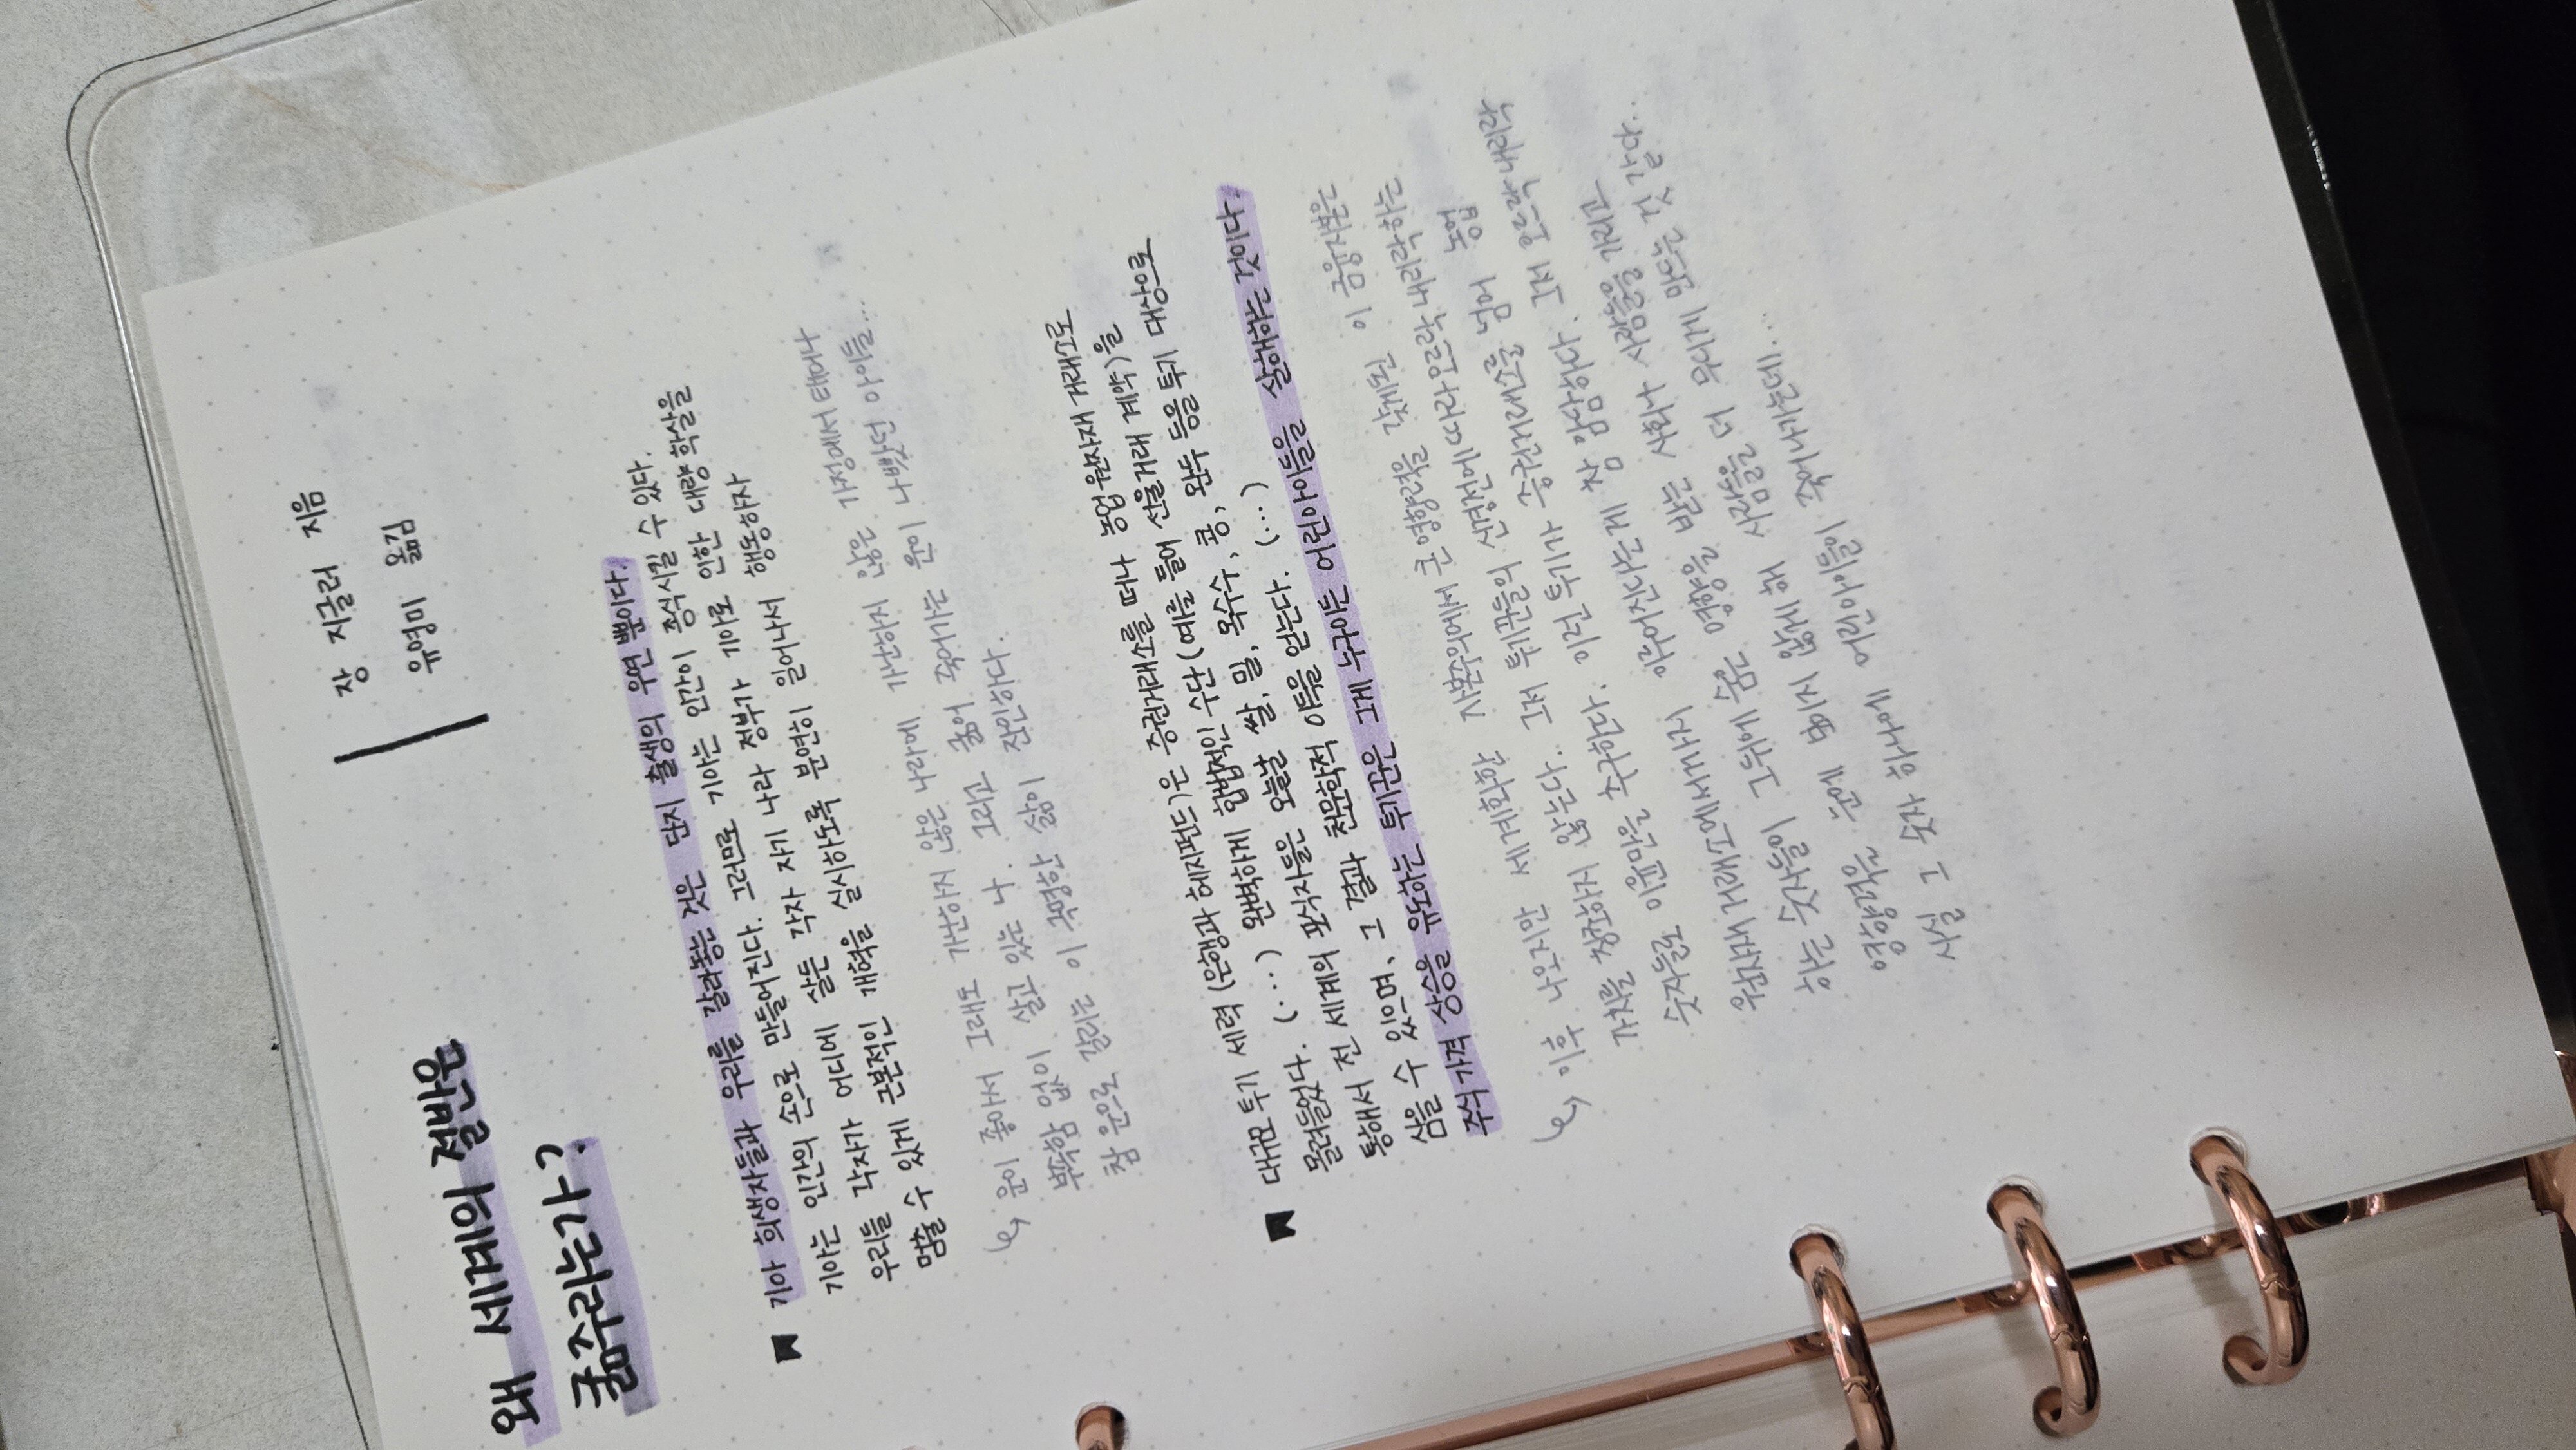 왜 세계의 절반은
굶주리는가?
장 지글러 지음
유영미 옮김
기아 희생자들과 우리를 갈라놓는 것은 단지 출생의 우연 뿐이다.
기아는 인간의 손으로 만들어진다. 그러므로 기아는 인간이 종식시킬 수 있다.
우리들 각자가 어디에 살든 각자 자기 나라 정부가 기아로 인한 대량 학살을
멈출 수 있게 근본적인 개혁을 실시하도록 분연히 일어나서 행동하자
↳ 운이 좋아서 그래도 가난하지 않은 나라에 가난하지 않은 가정에서 태어나
부족함 없이 살고 있는 나. 그리고 굶어 죽어가는 운이 나빴던 아이들...
참 운으로 갈리는 이 극명한 삶이 잔인하다.
대규모 투기 세력 (은행과 헤지펀드)은 증권거래소를 떠나 농업 원자재 거래소로
몰려들었다. (...) 완벽하게 합법적인 수단 (예를 들어 선물거래 계약)을
통해서 전 세계의 포식자들은 오늘날 쌀, 밀, 옥수수, 콩, 완두 등을 투기 대상으로
삼을 수 있으며, 그 결과 천문학적 이득을 얻는다. (...)
주식 가격 상승을 유도하는 투기꾼은 그게 누구이든 어린아이들을 살해하는 것이다.
↳ 이후 나오지만 세계화한 자본주의에서 큰 영향력을 갖게된 이 금융자본은
가치를 창조하지 않는다. 그저 투기꾼들의 신경전에 따라 오르락 내리락하는
숫자들로 이윤만을 추구한다. 이런 투기가 증권거래소를 넘어 농업
원자재 거래소에서까지 이루어진다는게 참 암담하다. 그저 오르락 내리락
하는 숫자들이 그 뒤에 숨은 영향을 받는 사회나 사람들을 가리고
영향력을 눈에 보이지 않게 해 사람을 더 무디게 만드는 것 같다.
사실 그 숫자 하나에 어린아이들이 죽어나가는데...